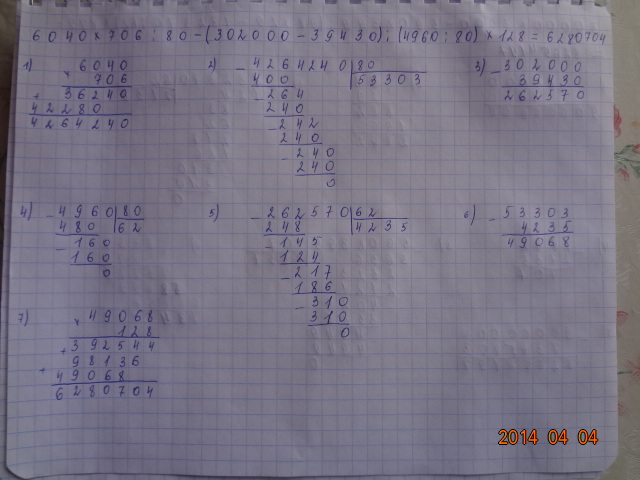 6040×706:80-(302000-39430):(4960:80)×128=6280704
1) 6040
× 706
+ 36240
42280
4264240
2) - 4264240 | 80
400 53303
- 264
240
- 242
240
- 240
240
0
3) - 302000
39430
262570
4) - 4960 | 80
480 62
- 160
160
0
5) - 262570 | 62
248 4235
- 145
124
- 217
186
- 310
310
0
6) - 53303
4235
49068
7) × 49068
128
+ 392544
98136
+ 49068
6280704
2014 04 04